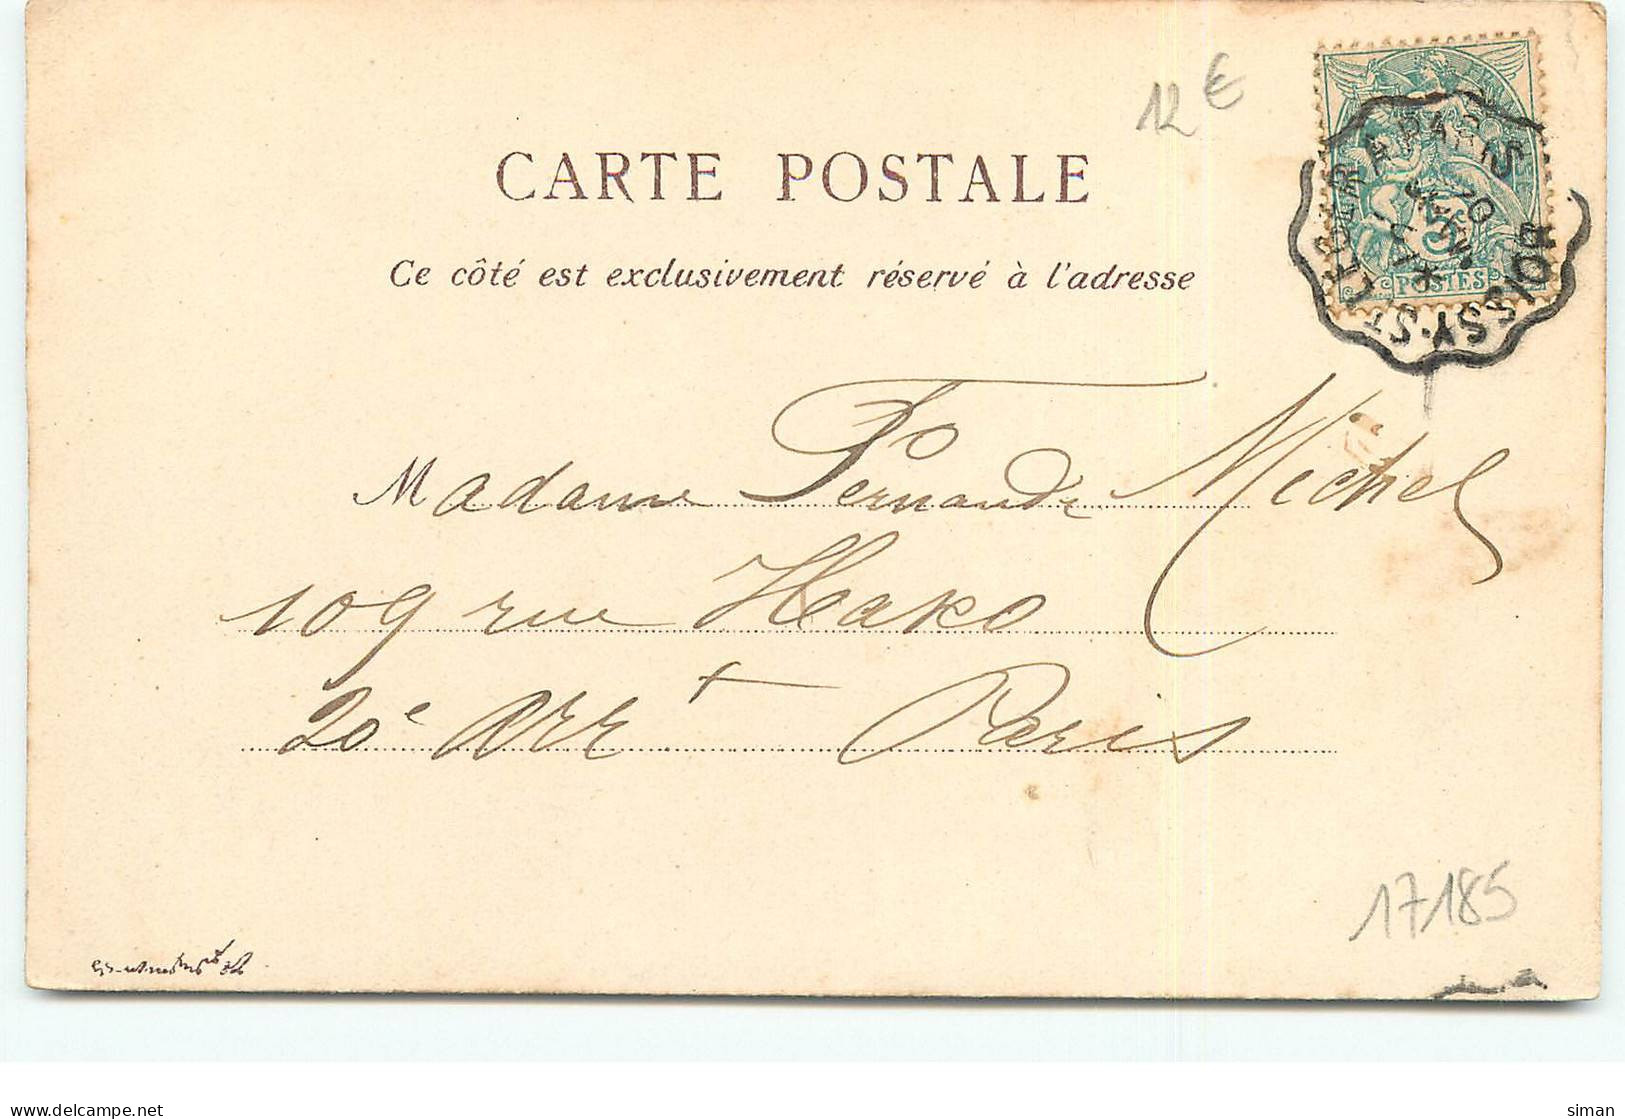 12 €
CARTE POSTALE
Ce côté est exclusivement réservé à l'adresse
5
POSTES
BOISSY-ST LEGER A PARIS
Madame Fernande Michel
109 rue Haxo
20e Arrt Paris
17185
delcampe.net
siman